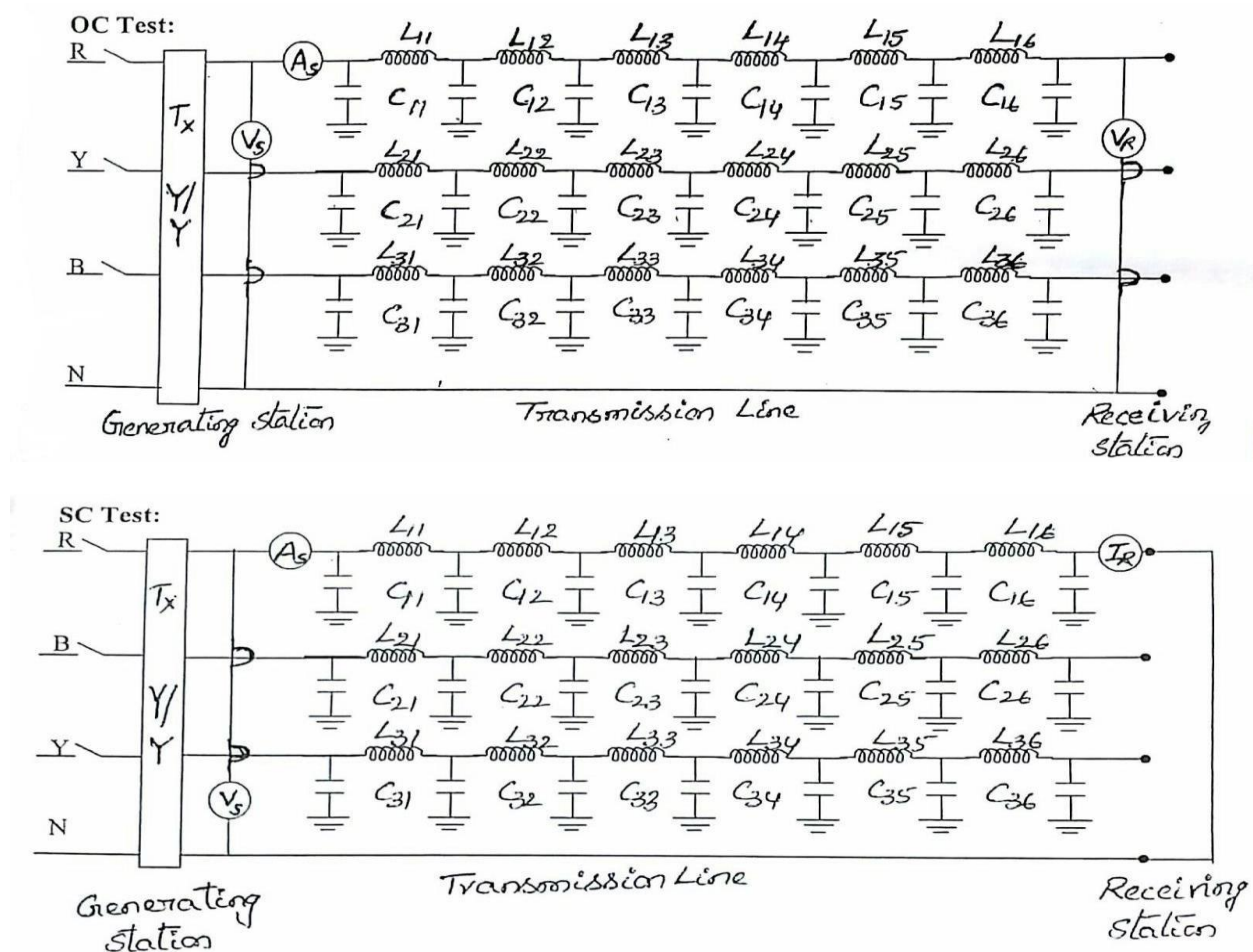 OC Test:
R
L11 L12 L13 L14 L15 L16
As
C11 C12 C13 C14 C15 C16
Tx
Vs
VR
Y
L21 L22 L23 L24 L25 L26
Y/
Y
C21 C22 C23 C24 C25 C26
B
L31 L32 L33 L34 L35 L36
C31 C32 C33 C34 C35 C36
N
Generating station
Transmission Line
Receiving
station
SC Test:
R
L11 L12 L13 L14 L15 L16
As
IR
Tx
C11 C12 C13 C14 C15 C16
B
L21 L22 L23 L24 L25 L26
Y/
Y
C21 C22 C23 C24 C25 C26
Y
L31 L32 L33 L34 L35 L36
Vs
C31 C32 C33 C34 C35 C36
N
Generating
station
Transmission Line
Receiving
station